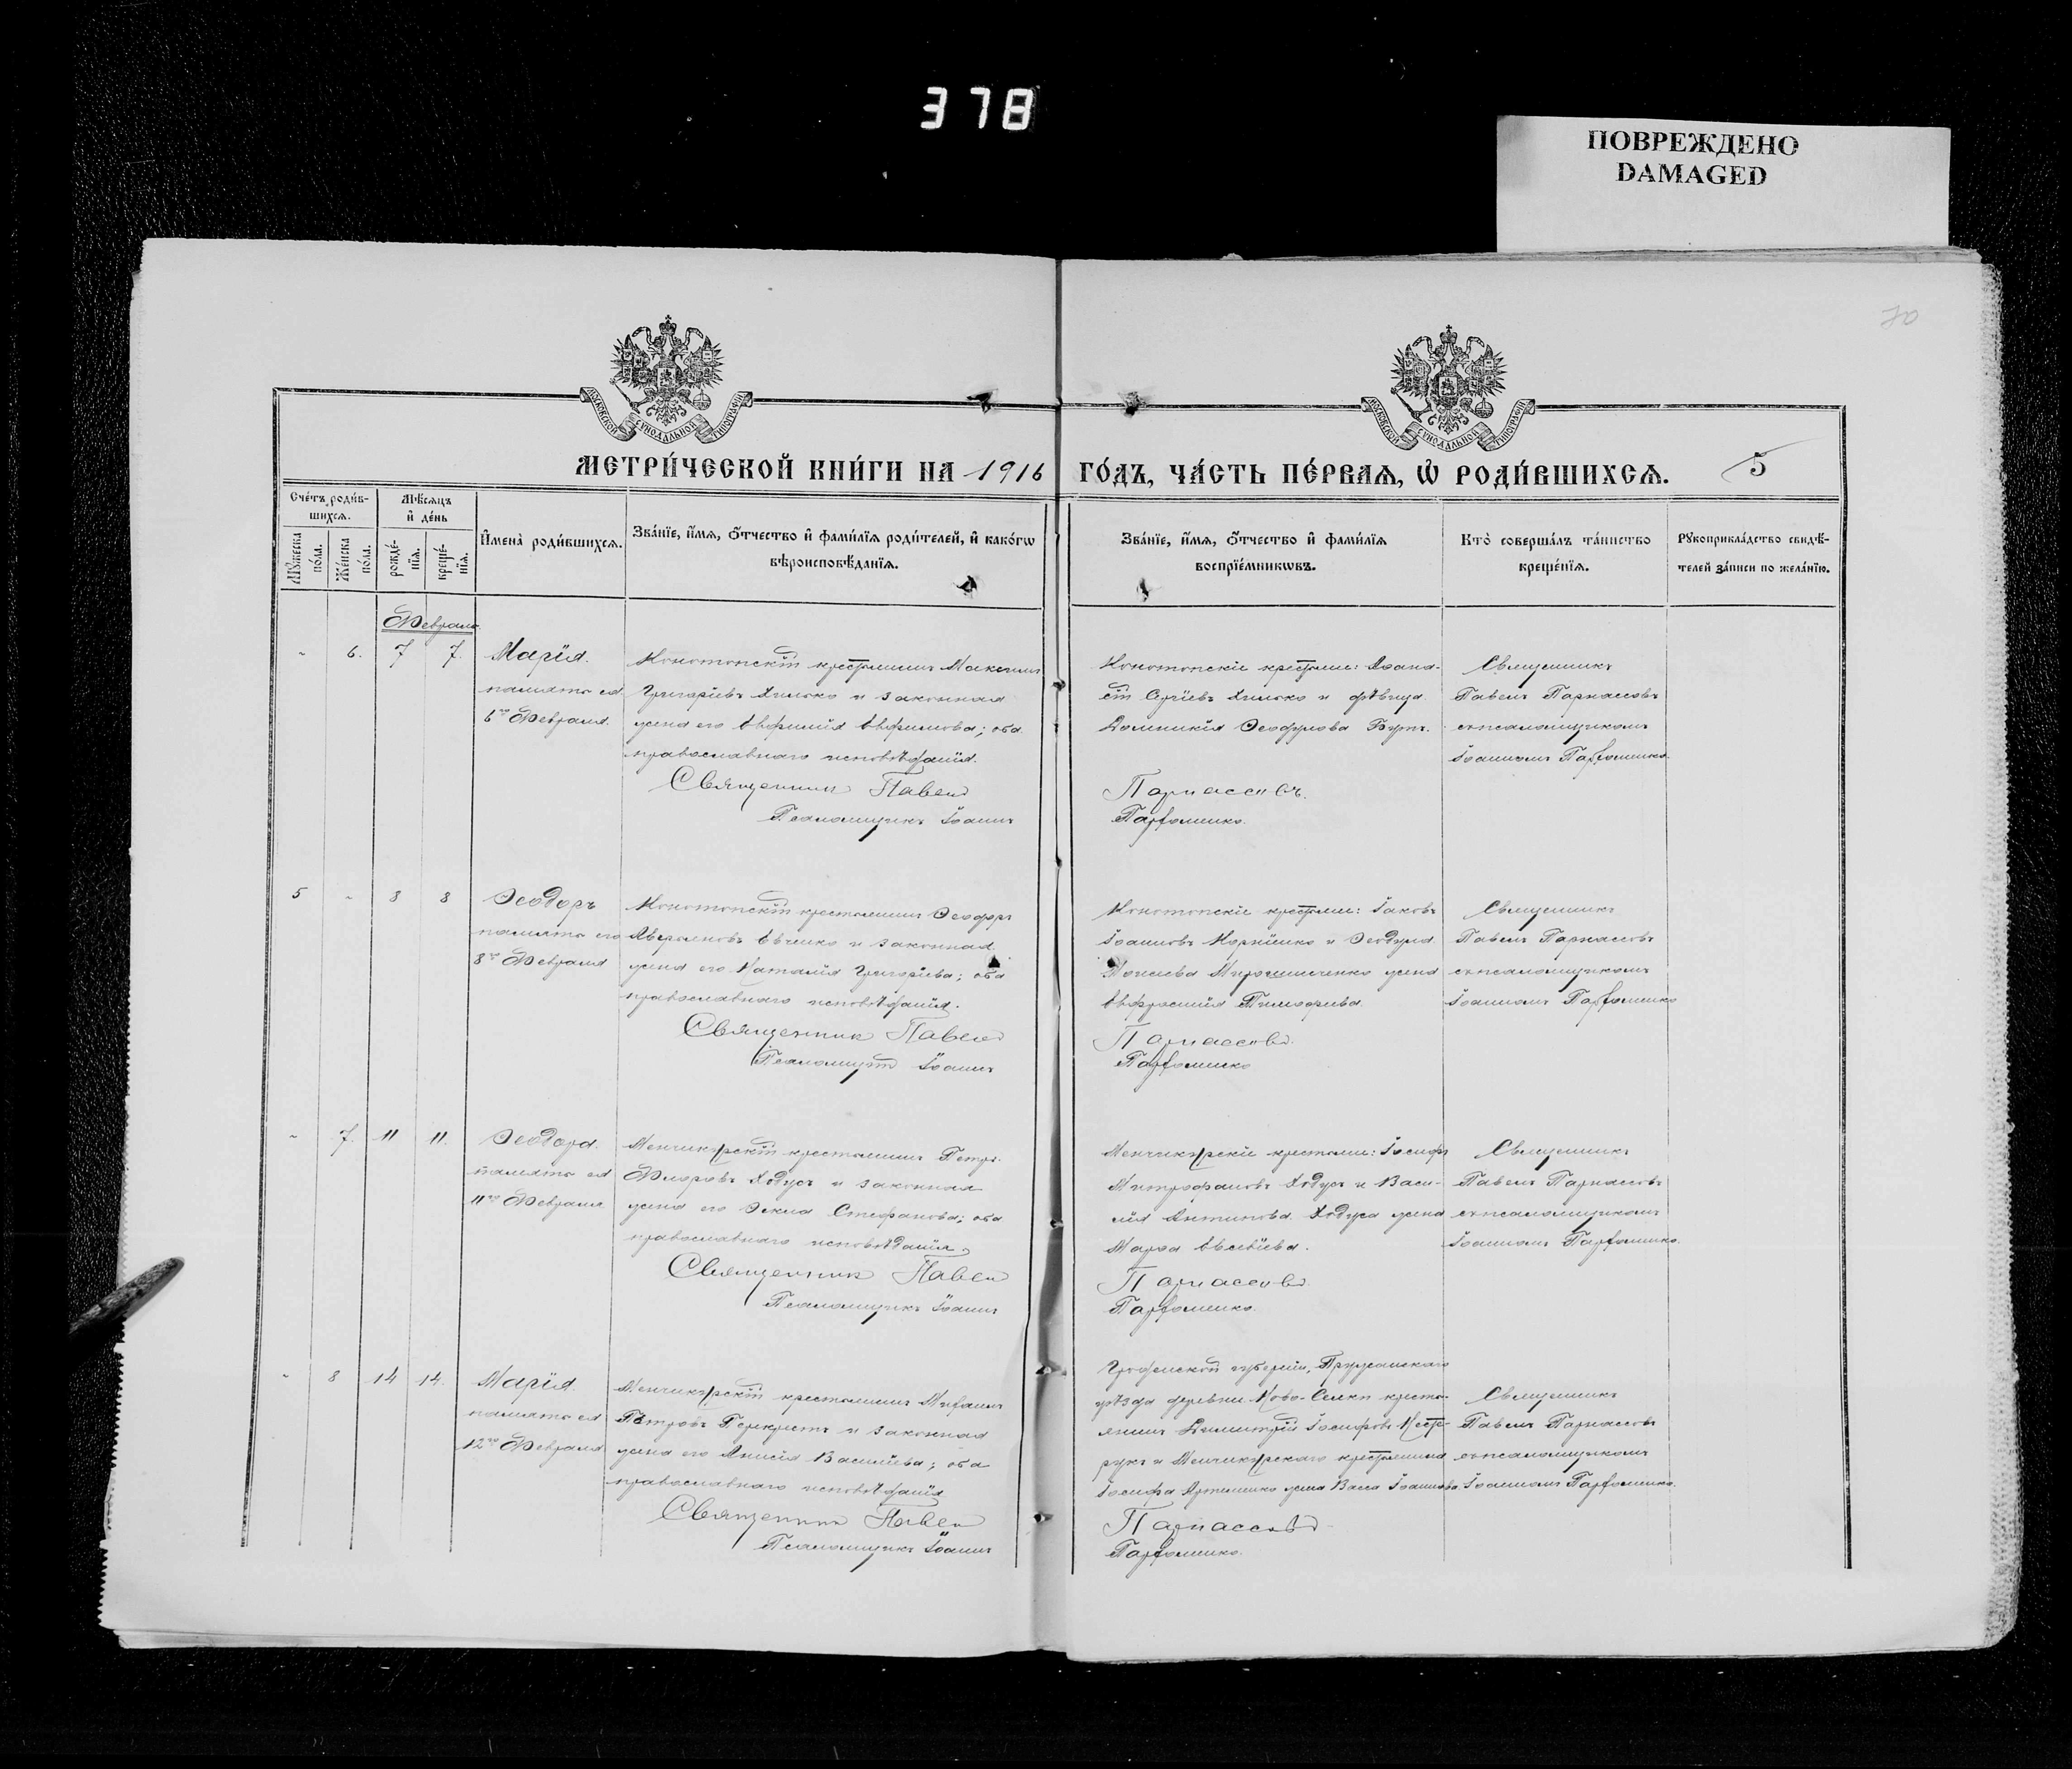 378
ПОВРЕЖДЕНО
DAMAGED
70
МОСКОВСКОЙ СУНОДАЛЬНОЙ ТИПОГРАФІИ
МОСКОВСКОЙ СУНОДАЛЬНОЙ ТИПОГРАФІИ
МЕТРИ́ЧЕСКОЙ КНИ́ГИ НА 1916 ГО́ДЪ, ЧА́СТЬ ПЕ́РВАѦ, Ѡ҆ РОДИ́ВШИХСѦ. 5
Сче́тъ роди́в-
шихсѧ.
Мѣ́сѧцъ
и҆ де́нь
Мꙋ́жеска
по́ла.
Же́нска
по́ла.
рожде́-
нїѧ.
креще́-
нїѧ.
И҆мена̀ роди́вшихсѧ.
Зва́нїе, и҆́мѧ, ѻ҆́тчество и҆ фами́лїѧ роди́телей, и҆ како́гѡ
вѣроисповѣ́данїѧ.
Зва́нїе, и҆́мѧ, ѻ҆́тчество и҆ фами́лїѧ
воспрїе́мникѡвъ.
Кто̀ соверша́лъ та́инство
креще́нїѧ.
Рꙋкоприкла́дство свидѣ́-
телей за́писи по жела́нїю.
Февраль
" 6. 7 7. Марія.
память ея
6го Февраля.
Конотопскій крестьянинъ Максимъ
Григоріевъ Хилько и законная
жена его Евфимія Евфимова; оба
православнаго исповѣданія.
Священникъ Павелъ
Псаломщикъ Іоаннъ
Конотопскіе крестьяне: Аѳана-
сій Сергіевъ Хилько и дѣвица
Домникія Ѳеодулова
Парнассовъ.
Парфоменко.
Священникъ
Павелъ Парнассовъ
съ псаломщикомъ
Іоанномъ Парфоменко.
5 " 8 8 Ѳеодоръ
память его
8го Февраля
Конотопскій крестьянинъ Ѳеодоръ
Евченко и законная
жена его Наталія Григоріева; оба
православнаго исповѣданія.
Священникъ Павелъ
Псаломщикъ Іоаннъ
Конотопскіе крестьяне: Іаковъ
Іоанновъ Корніенко и Ѳеодула
Моисеева Мирошниченко жена
Евфросинія Тимофеева.
Парнассовъ.
Парфоменко
Священникъ
Павелъ Парнассовъ
съ псаломщикомъ
Іоанномъ Парфоменко
" 7. 11 11. Ѳеодора.
память ея
11го Февраля
Менчикурскій крестьянинъ Петръ
Флоровъ Ходусъ и законная
жена его Ѳекла Стефанова; оба
православнаго исповѣданія.
Священникъ Павелъ
Псаломщикъ Іоаннъ
Менчикурскіе крестьяне: Іосифъ
Митрофановъ Ходусъ и Васи-
лія Антипова Ходуса жена
Марѳа Евсевіева.
Парнассовъ
Парфоменко.
Священникъ
Павелъ Парнассовъ
съ псаломщикомъ
Іоанномъ Парфоменко.
" 8 14 14. Марія.
память ея
12го Февраля
Менчикурскій крестьянинъ Михаилъ
Петровъ Перекрестъ и законная
жена его Анисія Василіева; оба
православнаго исповѣданія
Священникъ Павелъ
Псаломщикъ Іоаннъ
Гродненской губерніи, Пружанскаго
уѣзда деревни Ново-Селки кресть-
янинъ Димитрій Іосифовъ Несте-
рукъ и Менчикурскаго крестьянина
Іосифа Артеменко жена Васса Іоаннова
Парнассовъ
Парфоменко.
Священникъ
Павелъ Парнассовъ
съ псаломщикомъ
Іоанномъ Парфоменко.